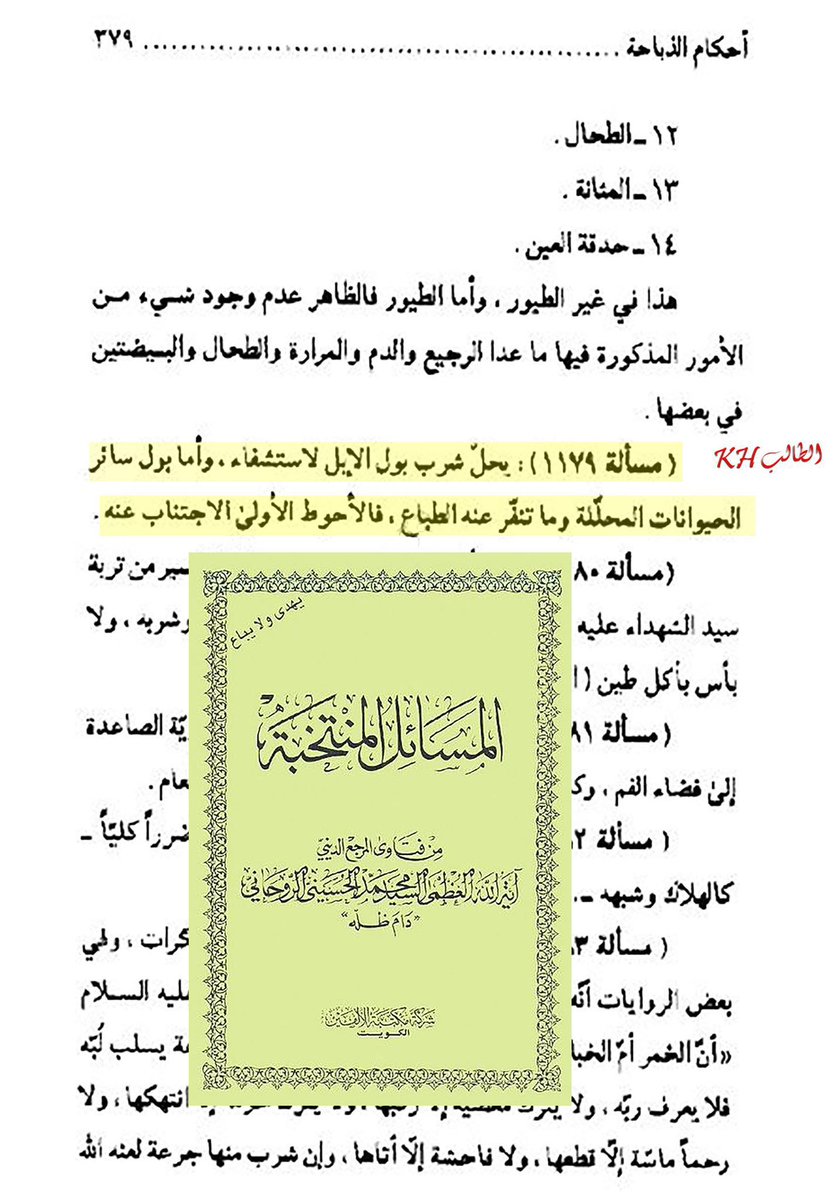 أحكام الذباحة ........................................................ ٣٧٩
١٢ ـ الطحال .
١٣ ـ المثانة .
١٤ ـ حدقة العين .
هذا في غير الطيور ، وأما الطيور فالظاهر عدم وجود شيء من
الأمور المذكورة فيها ما عدا الرجيع والدم والمرارة والطحال والبيضتين
في بعضها .
( مسألة ١١٧٩ ) : يحلّ شرب بول الإبل لاستشفاء ، وأما بول سائر
الطالب KH
الحيوانات المحلّلة وما تنفّر عنه الطباع ، فالأحوط الأولىٰ الاجتناب عنه .
( مسألة ٨٠ من تربة
سيد الشهداء عليه وشربه ، ولا
بأس بأكل طين (
( مسألة ٨١ الصاعدة
إلىٰ فضاء الفم ،
( مسألة ضرراً كليّاً ـ
كالهلاك وشبهه ـ.
( مسألة ، وفي
بعض الروايات أنّه عليه السلام
«أنّ الخمر أمّ يسلب لُبّه
فلا يعرف ربّه ، ولا انتهكها ، ولا
رحماً ماسّة إلّا قطعها ، ولا فاحشة إلّا أتاها ، وإن شرب منها جرعة لعنه الله
يهدى ولا يباع
المسائل المنتخبة
من فتاوى المرجع الديني
آية الله العظمى السيد محمد الحسيني الروحاني
"دام ظله"
شركة مكتبة الألفين
الكويت